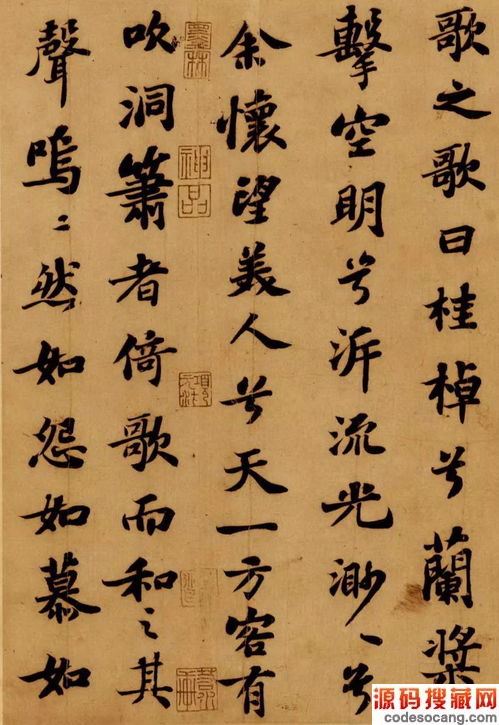 歌之歌曰桂棹兮蘭槳
擊空明兮泝流光渺〻兮
余懷望美人兮天一方客有
吹洞簫者倚歌而和之其
聲嗚〻然如怨如慕如
墨林
神品
源码搜藏网
codesocang.com